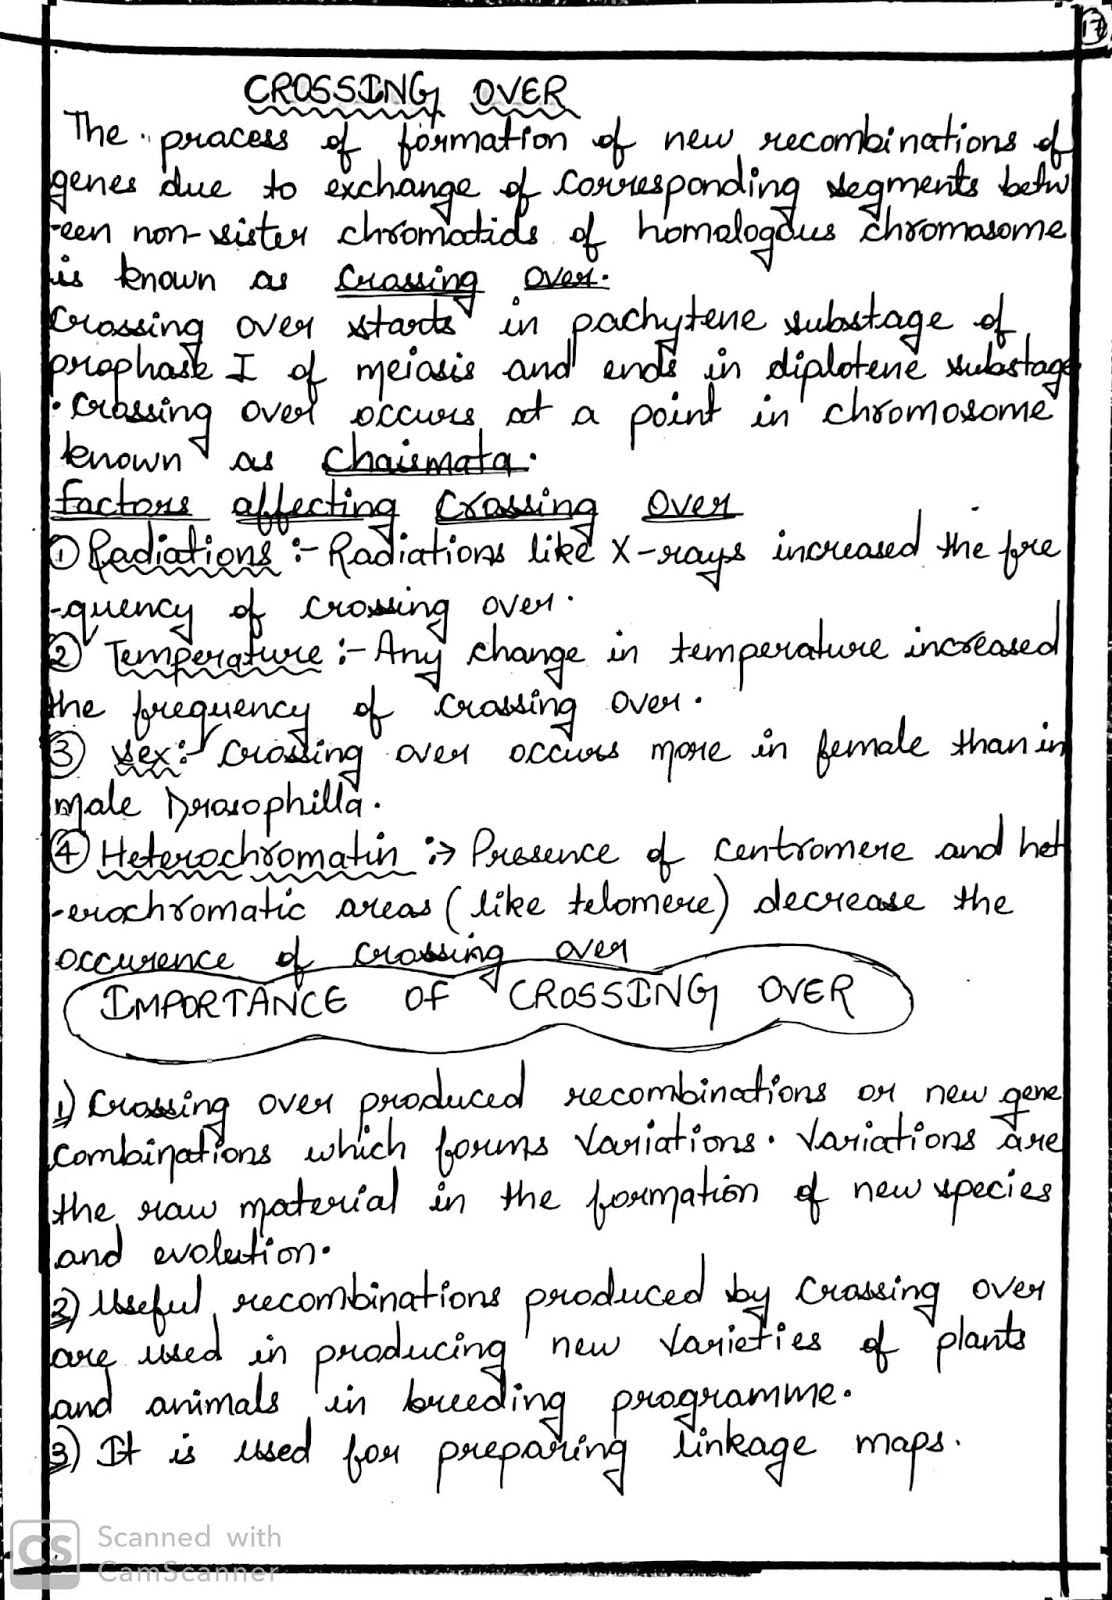 17
CROSSING OVER
The process of formation of new recombinations of
genes due to exchange of corresponding segments betw
-een non-sister chromatids of homologous chromosome
is known as Crossing Over.
Crossing over starts in pachytene substage of
prophase I of meiosis and ends in diplotene substage
. Crossing over occurs at a point in chromosome
known as Chaismata.
Factors affecting Crossing Over
① Radiations :- Radiations like X-rays increased the fre
-quency of crossing over.
② Temperature :- Any change in temperature increased
the frequency of crossing over.
③ Sex:- Crossing over occurs more in female than in
male Drosophilla.
④ Heterochromatin :→ Presence of centromere and het
-erochromatic areas (like telomere) decrease the
occurence of crossing over
IMPORTANCE OF CROSSING OVER
1) Crossing over produced recombinations or new gene
combinations which forms variations. Variations are
the raw material in the formation of new species
and evolution.
2) Useful recombinations produced by crossing over
are used in producing new varieties of plants
and animals in breeding programme.
3) It is used for preparing linkage maps.
CS Scanned with
CamScanner